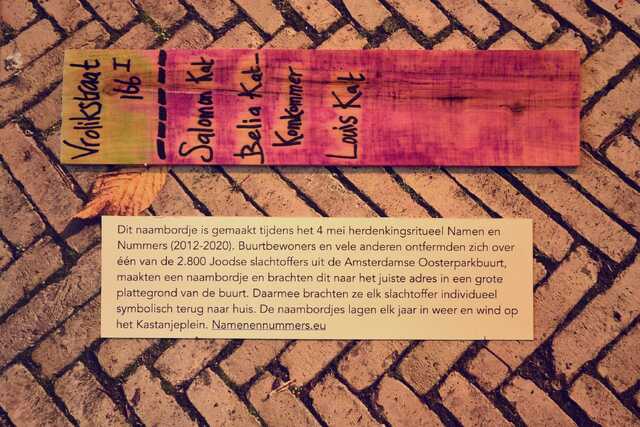 Vrolikstraat
166 I
Salomon Kat
Belia Kat-
Komkommer
Louis Kat.
Dit naambordje is gemaakt tijdens het 4 mei herdenkingsritueel Namen en
Nummers (2012-2020). Buurtbewoners en vele anderen ontfermden zich over
één van de 2.800 Joodse slachtoffers uit de Amsterdamse Oosterparkbuurt,
maakten een naambordje en brachten dit naar het juiste adres in een grote
plattegrond van de buurt. Daarmee brachten ze elk slachtoffer individueel
symbolisch terug naar huis. De naambordjes lagen elk jaar in weer en wind op
het Kastanjeplein. Namenennummers.eu